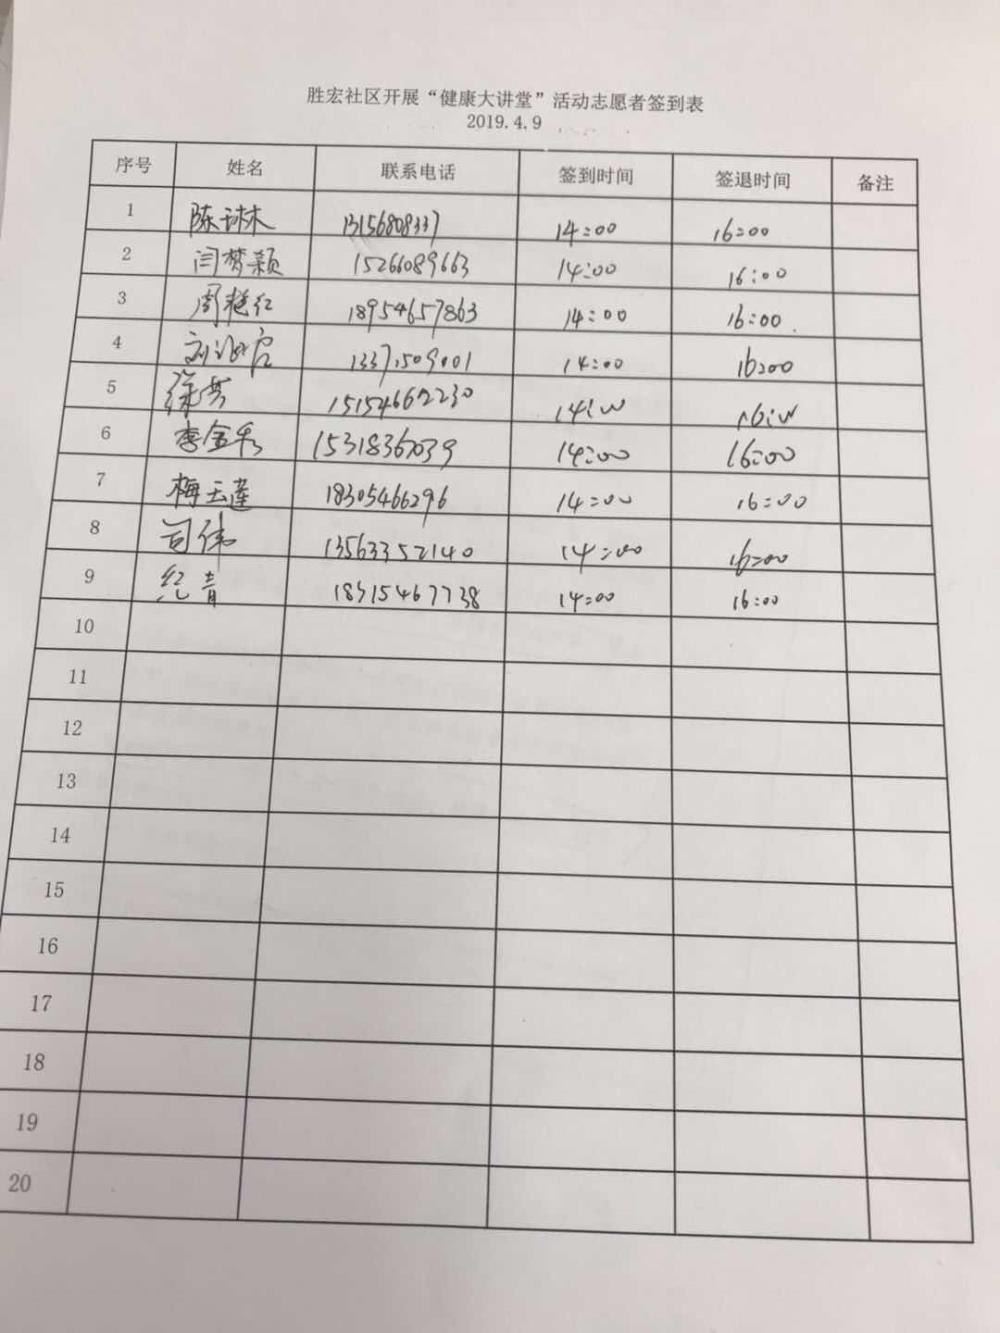 胜宏社区开展“健康大讲堂”活动志愿者签到表
2019.4.9
序号 姓名 联系电话 签到时间 签退时间 备注
1 陈琳 14:00 16:00
2 闫梦颖 15266089663 14:00 16:00
3 周艳红 18954657863 14:00 16:00
4 刘 13371509001 14:00 16:00
5 徐芳 15154662230 14:00 16:00
6 李金秀 14:00 16:00
7 梅玉莲 18305466296 14:00 16:00
8 司伟 13563352140 14:00 16:00
9 纪青 14:00 16:00
10
11
12
13
14
15
16
17
18
19
20